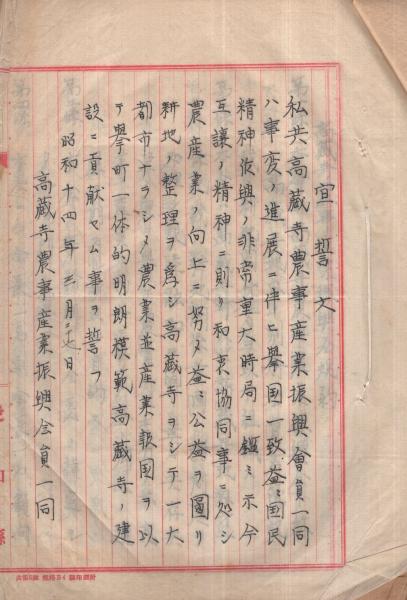 宣誓文
私共高蔵寺農事産業振興會員一同
ハ事変ノ進展ニ伴ヒ擧国一致益々国民
精神作興ノ非常重大時局ニ鑑ミ示今
互譲ノ精神ニ則リ和衷協同事ニ処シ
農産業ノ向上ニ努メ益々公益ヲ圖リ
耕地ノ整理ヲ爲シ高蔵寺ヲシテ一大
都市ナラシメ農業並産業報国ヲ以
テ擧町一体的明朗模範高蔵寺ノ建
設ニ貢献セム事ヲ誓フ
昭和十四年三月二十七日
高蔵寺農事産業振興会員一同